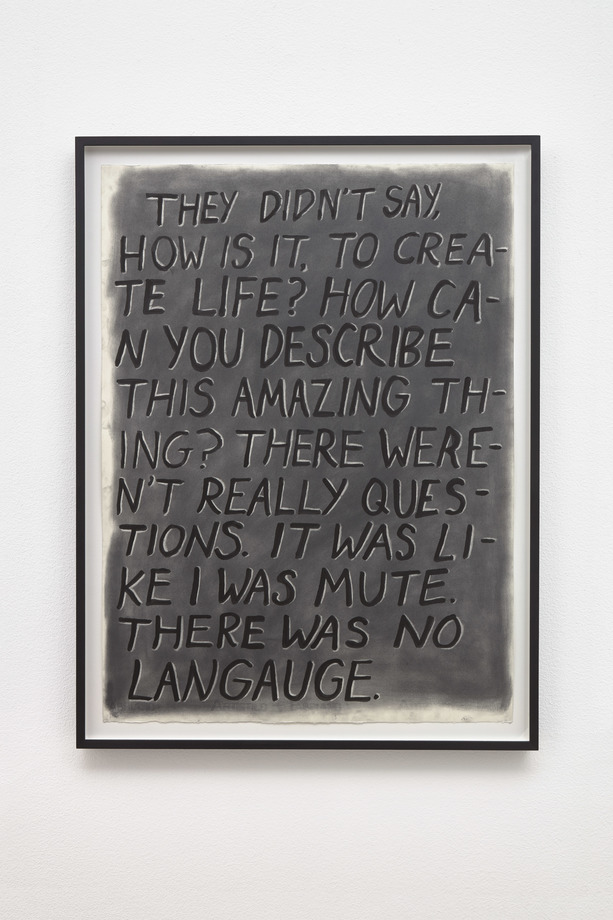 THEY DIDN'T SAY,
HOW IS IT, TO CREA-
TE LIFE? HOW CA-
N YOU DESCRIBE
THIS AMAZING TH-
ING? THERE WERE-
N'T REALLY QUES-
TIONS. IT WAS LI-
KE I WAS MUTE.
THERE WAS NO
LANGAUGE.